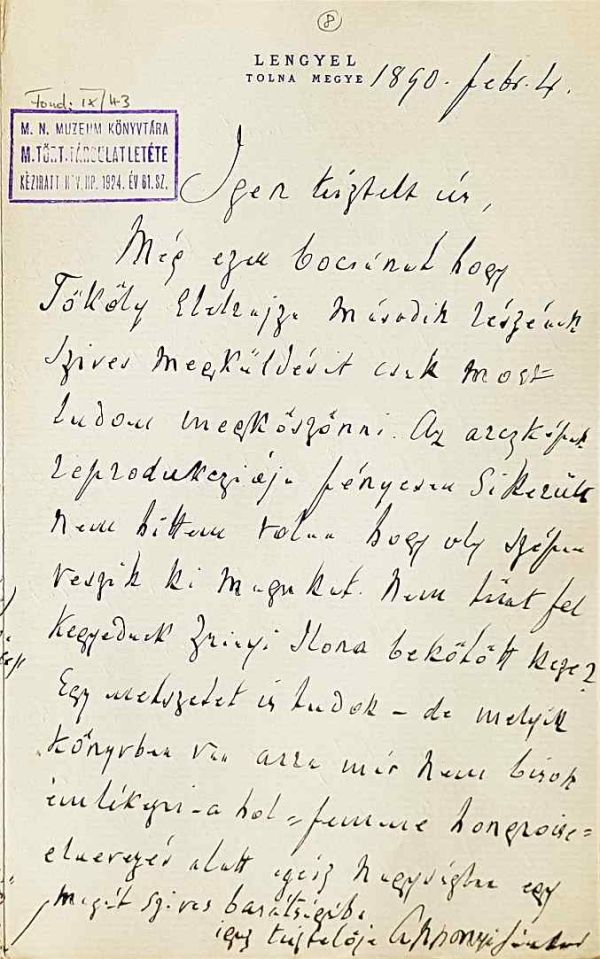 8
LENGYEL
TOLNA MEGYE 1890. febr. 4.
Fond: IX/43
M. N. MUZEUM KÖNYVTÁRA
M. TÖRT. TÁRSULAT LETÉTE
KÉZIRATI NÖV. NP. 1924. ÉV 61. SZ.
Igen tisztelt úr,
Még ezer bocsánat hogy
Tököly Eletrajza második részének
szives megküldésit csak most
tudom megköszönni. Az arczképek
reprodukcziója fényesen sikerült
nem hittem volna hogy oly szépen
veszik ki magukat. Nem tünt fel
Kegyednek Zrinyi Ilona bekötött keze?
Egy metszetet is tudok – de melyik
könyvben van arra már nem birok
emlékezni – a hol "femme hongroise"
elnevezés alatt egész nagyságban egy
magát szives barátságába
igaz tisztelője Apponyi Sándor